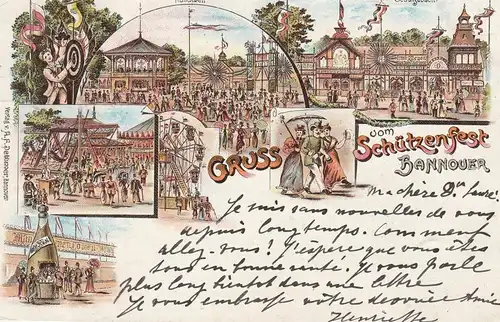 Rundteil
Schützenhaus
Verlag v. R. F.
GRUSS
vom
Schützenfest
HANNOVER
Ma chère Dn
Je suis sans nouvelles de vous
depuis longtemps. Comment
allez-vous? J'espère que vous êtes
tous en bonne santé. Je vous parle
plus longtemps dans une lettre
Je vous embrasse votre dévouée Amie
Henriette